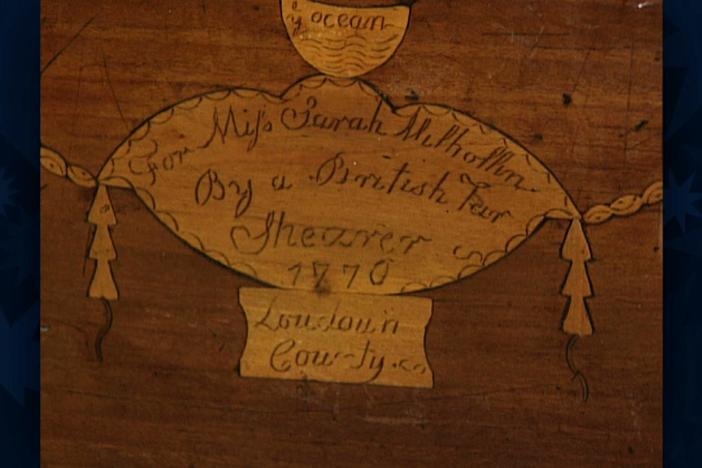 yͤ ocean
For Miſs Sarah Milhollin
By a British Tar
Shearer
1770
Loudoun
County.